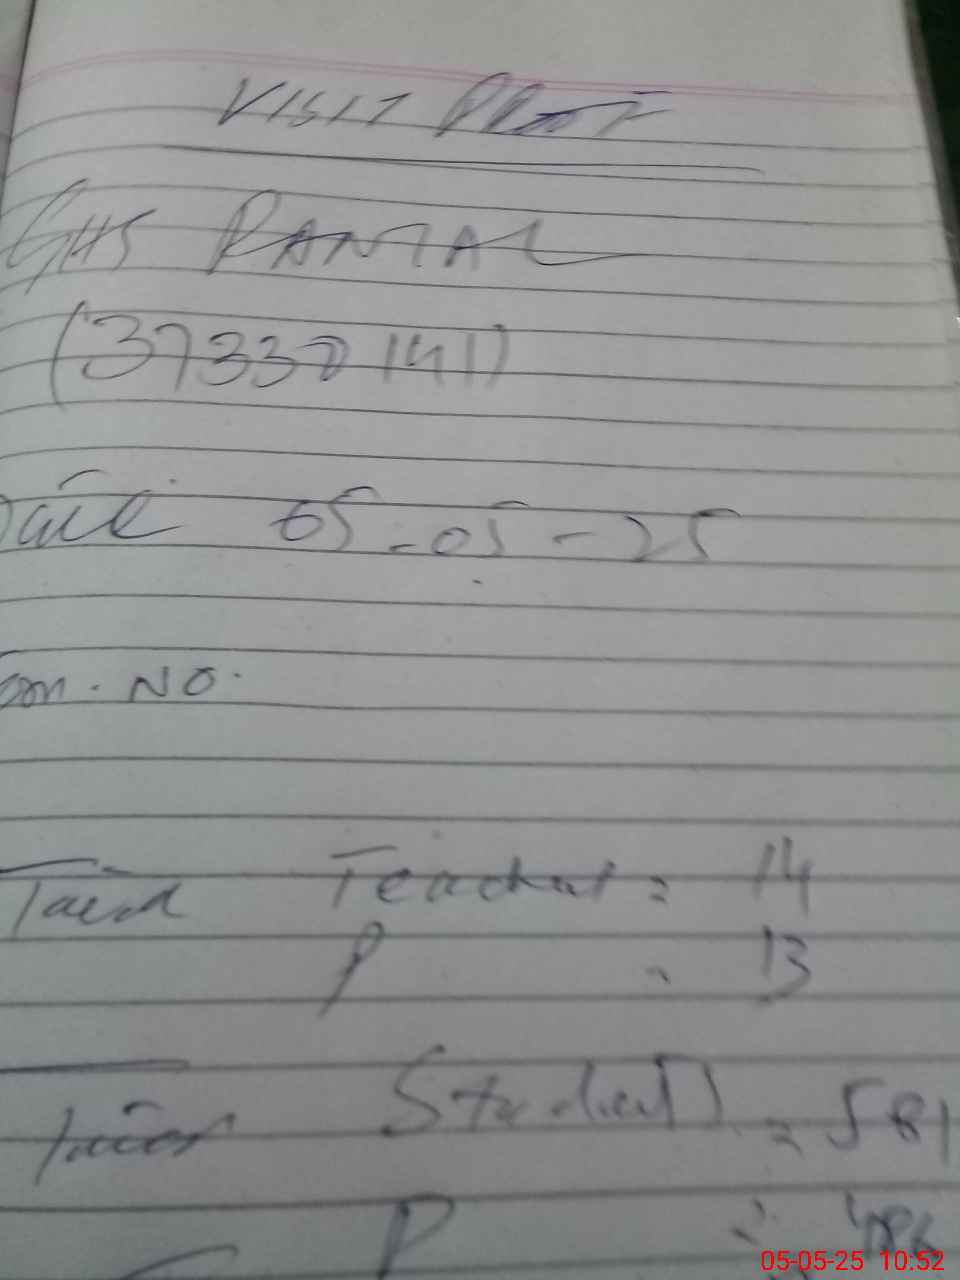 VISIT PROOF
GHS RANJAL
(37330141)
Date 05-05-25
Com. NO.
Total Teachers = 14
P = 13
Total Students = 581
P = 486
05-05-25 10:52